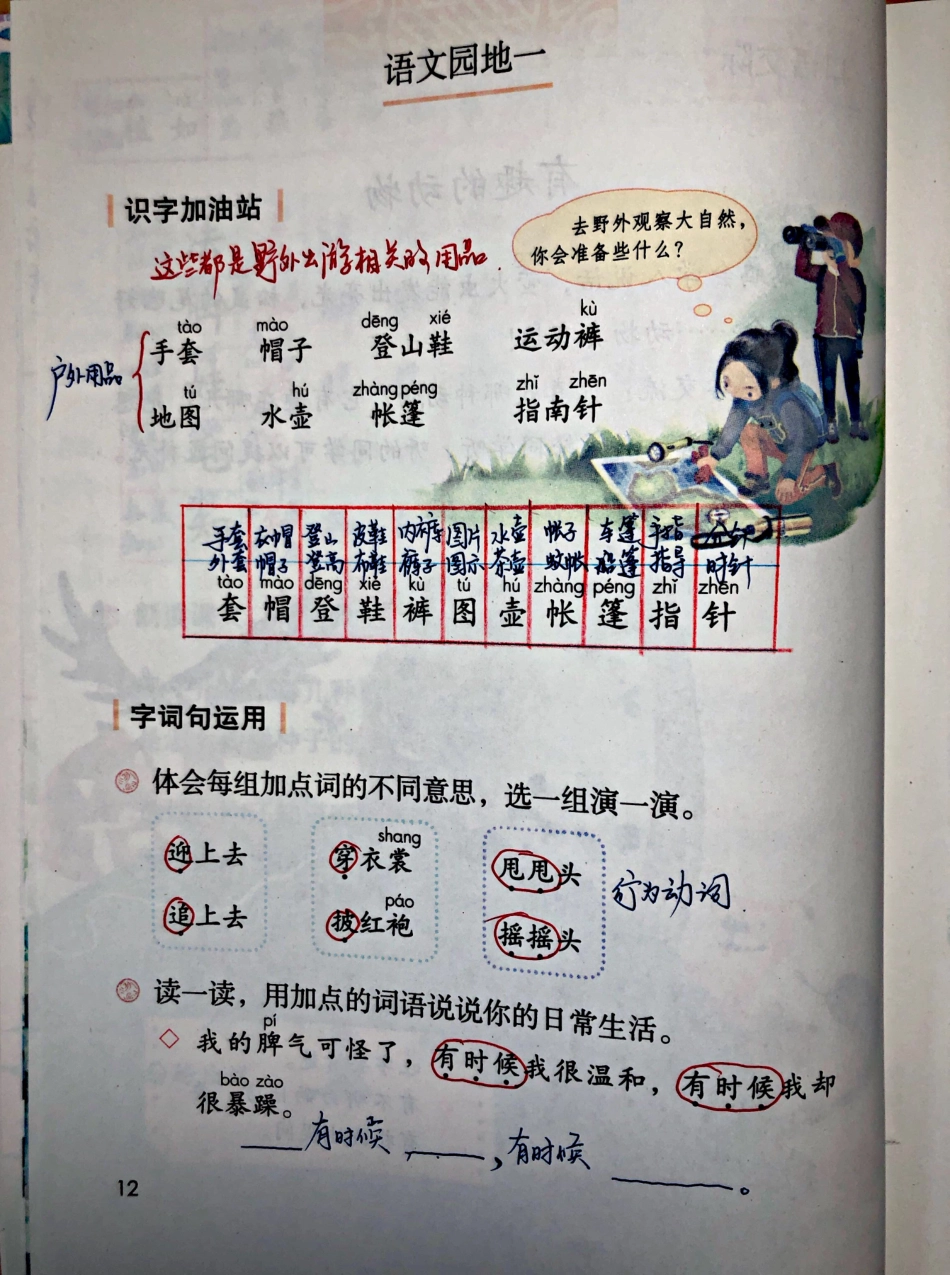 语文园地一
识字加油站
去野外观察大自然，
你会准备些什么？
这些都是野外出游相关的用品.
tào mào dēng xié kù
手套 帽子 登山鞋 运动裤
户外用品
tú hú zhàng péng zhǐ zhēn
地图 水壶 帐篷 指南针
手套 衣帽 登山 皮鞋 内裤 图片 水壶 帐子 车篷 手指 分针
外套 帽子 登高 布鞋 裤子 图示 茶壶 蚊帐 船篷 指导 时针
tào mào dēng xié kù tú hú zhàng péng zhǐ zhēn
套 帽 登 鞋 裤 图 壶 帐 篷 指 针
字词句运用
体会每组加点词的不同意思，选一组演一演。
shang
迎上去 穿衣裳 甩甩头
行为动词
páo
追上去 披红袍 摇摇头
读一读，用加点的词语说说你的日常生活。
pí
我的脾气可怪了，有时候我很温和，有时候我却
bào zào
很暴躁。
____有时候____，有时候____。
12